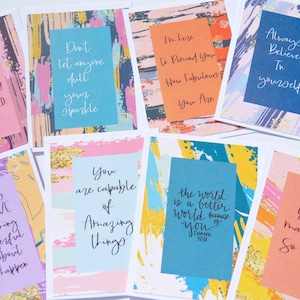 Don't
let anyone
dull
your
sparkle
I'm Here
to Remind You
How Fabulous
You Are
Always
Believe
In
yourself
You
are capable
of
Amazing
things
the world
is a better
world because
of you
THANK
YOU!
about
happen